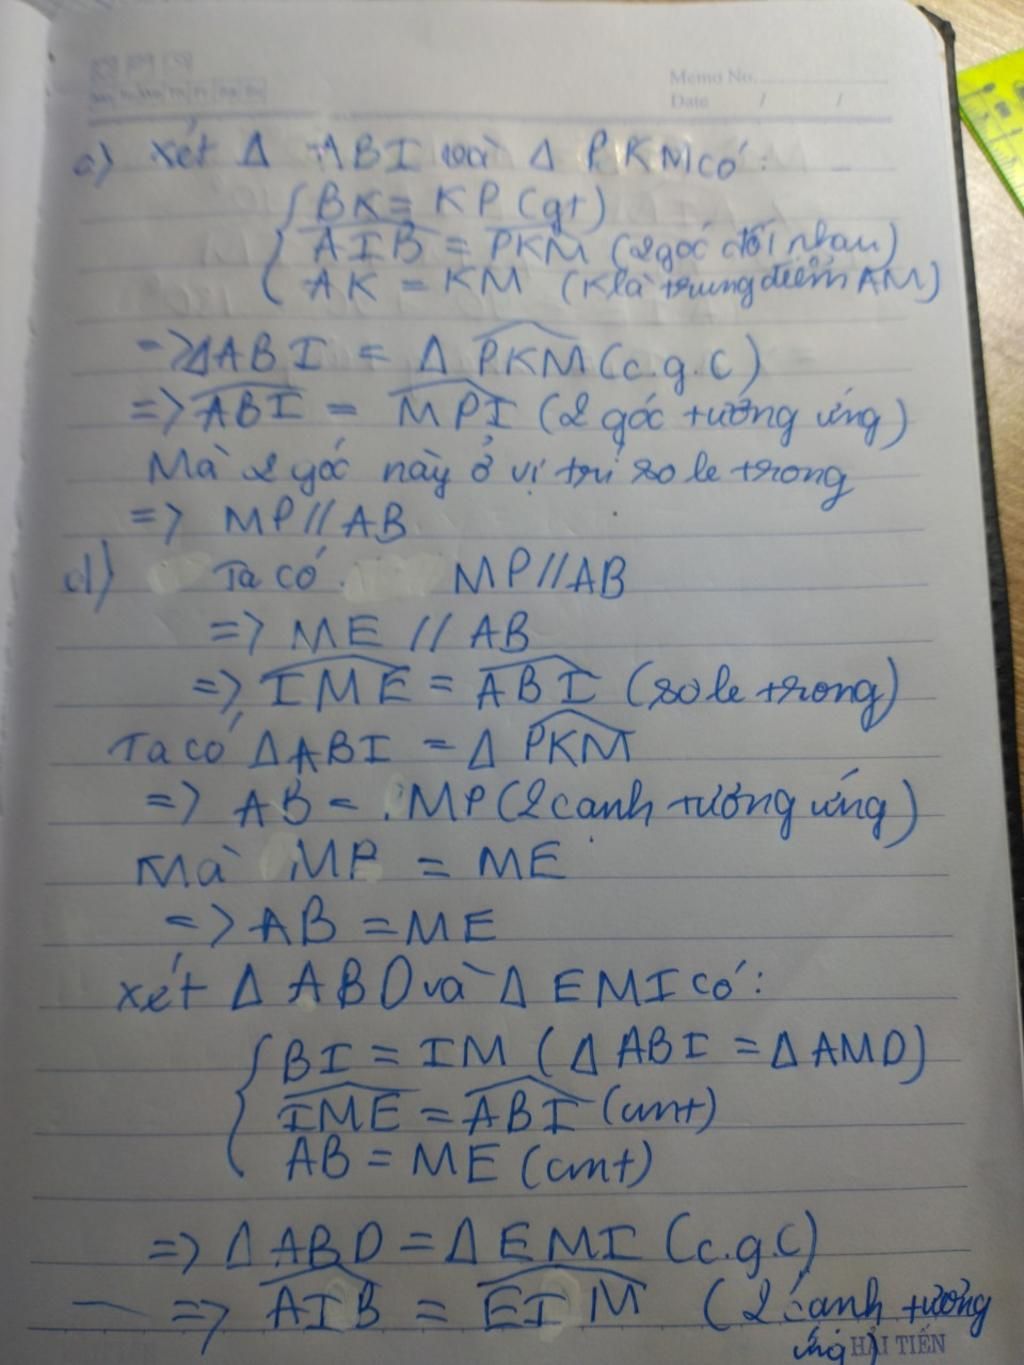 Memo No.
Date / /
c) xét Δ ABI và Δ PKM có:
{BK = KP (gt)
AIB = PKM (2 góc đối nhau)
AK = KM (K là trung điểm AM)
=> ΔABI = Δ PKM (c.g.c)
=> ABI = MPI (2 góc tướng ứng)
Mà 2 góc này ở vị trí so le trong
=> MP // AB
d) Ta có MP // AB
=> ME // AB
=> IME = ABI (so le trong)
Ta có ΔABI = Δ PKM
=> AB = MP (2 canh tướng ứng)
Mà MP = ME
=> AB = ME
xét Δ ABD và Δ EMI có:
{BI = IM (Δ ABI = Δ AMD)
IME = ABI (cmt)
AB = ME (cmt)
=> Δ ABD = Δ EMI (c.g.c)
=> AIB = EIM (2 cạnh tương
ứng)
HẢI TIẾN